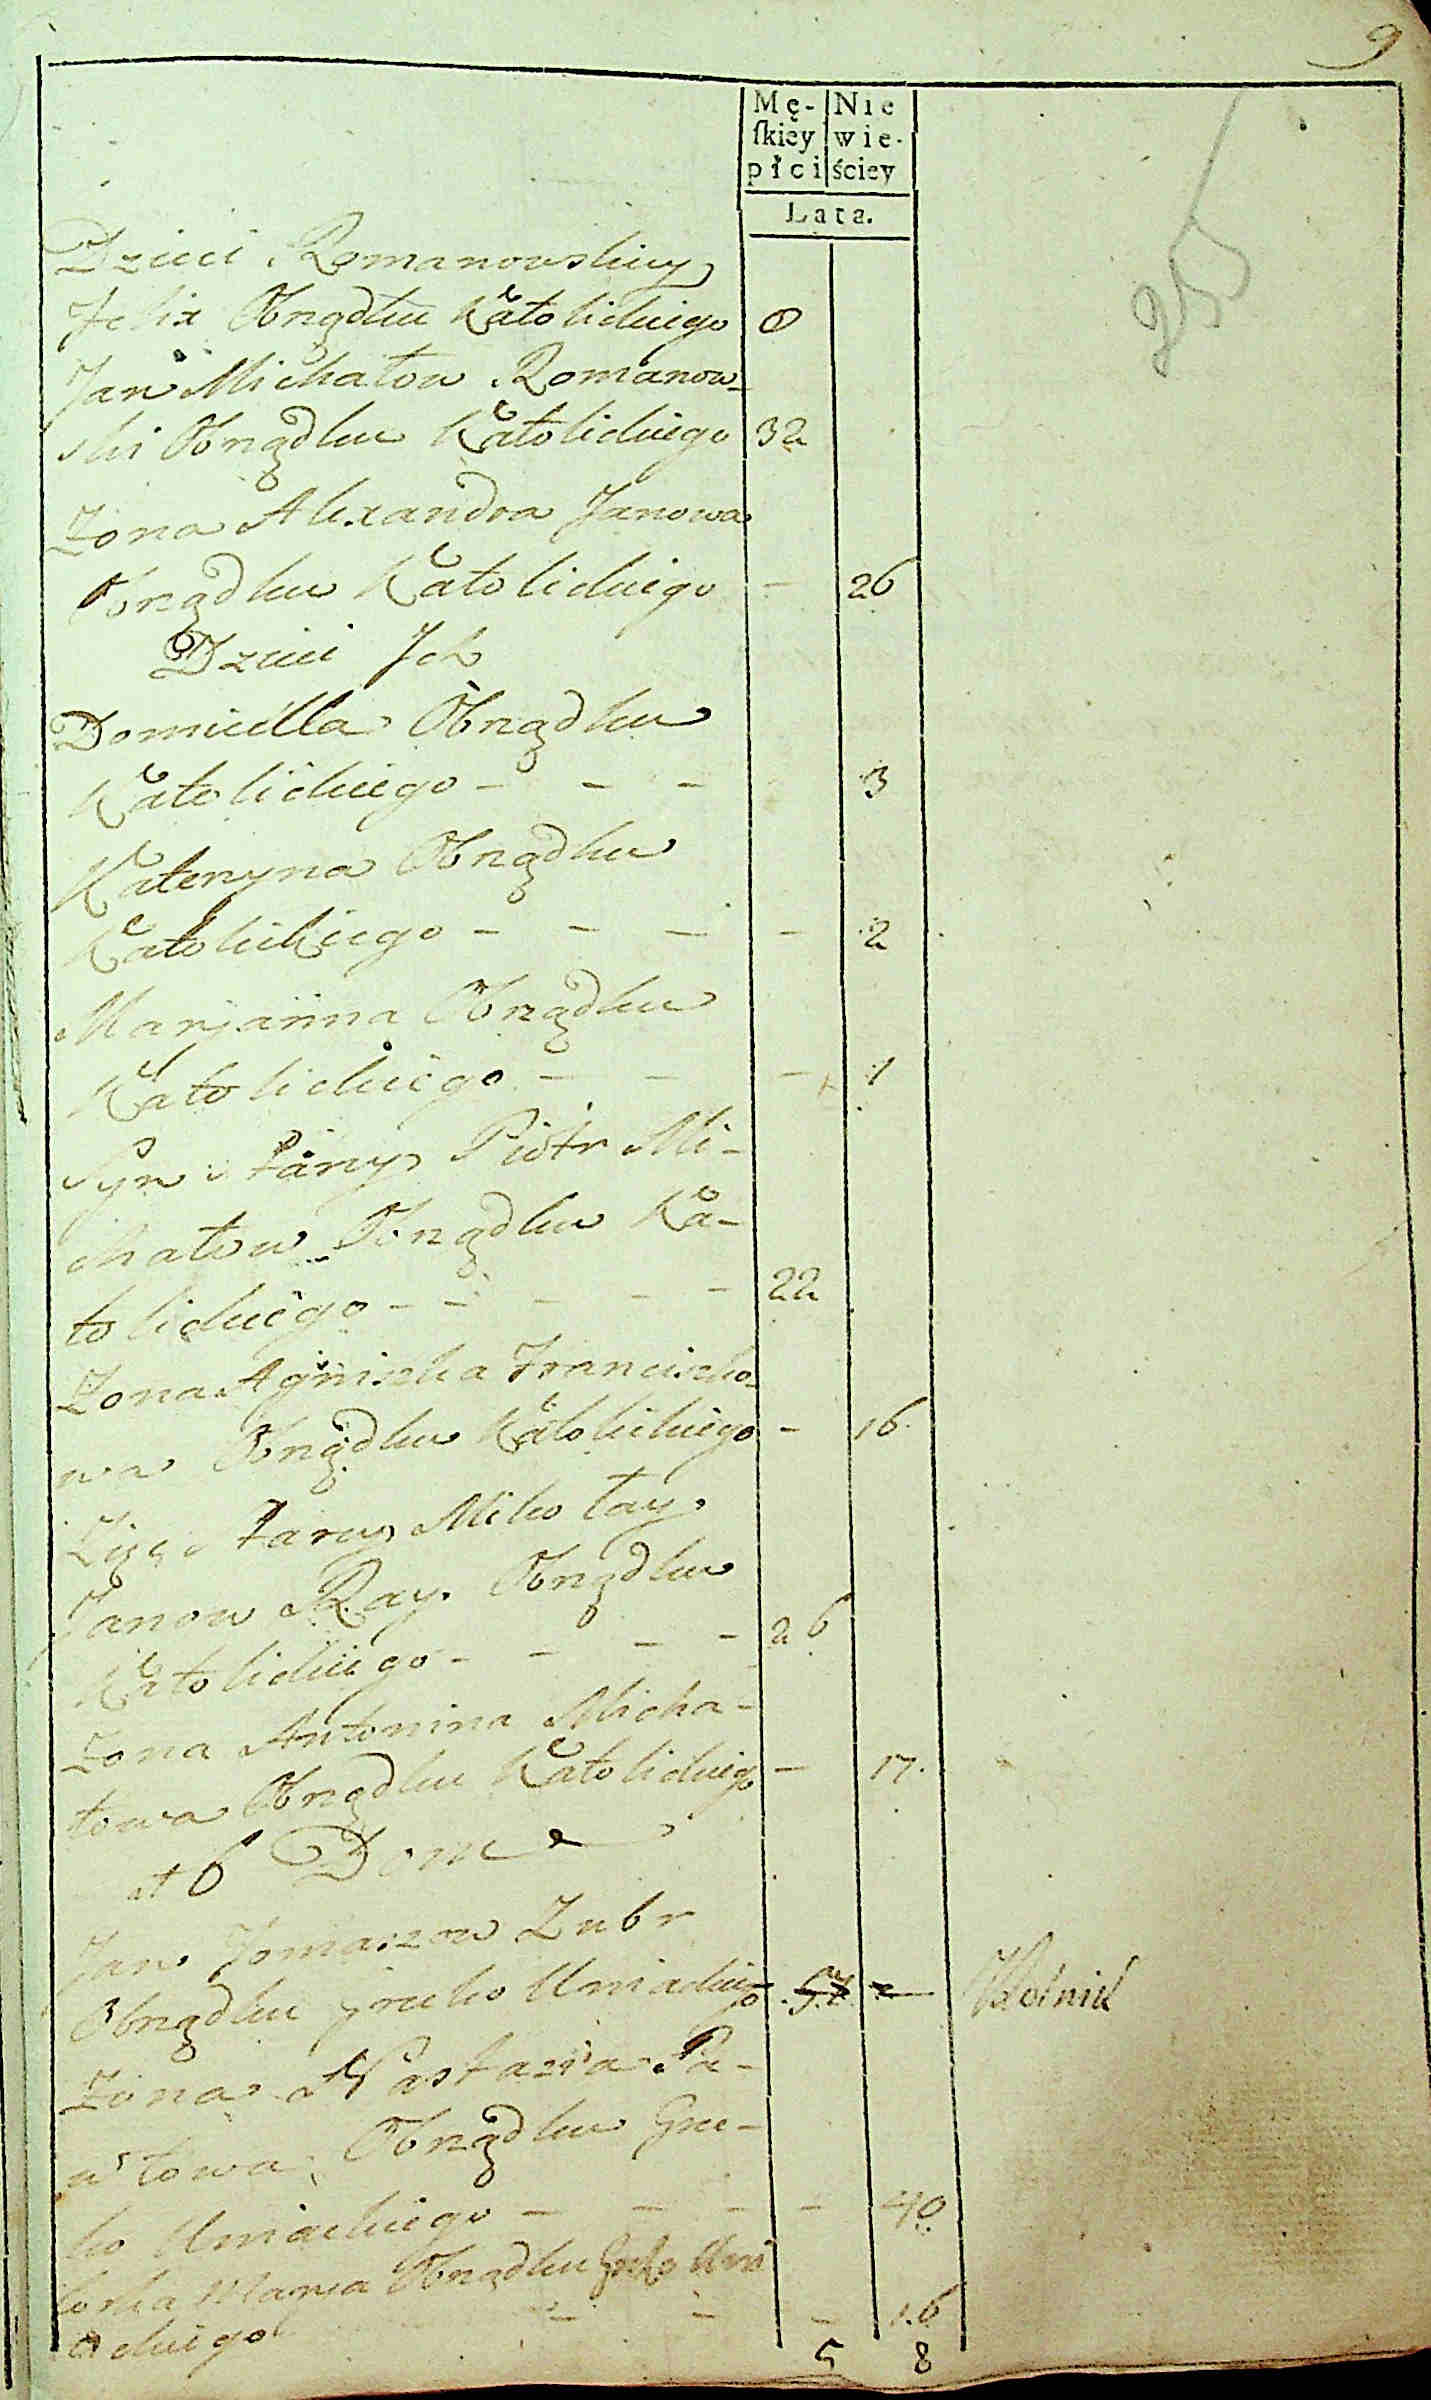 9
Mę- Nie
ſkiey wie-
płci ściey
Lata.
Dzieci Romanowskiey
Felix Obrządku Katolickiego 8
Jan Michałow Romanow-
ski Obrządku Katolickiego 32
Żona Alexandra Janowa
Obrządku Katolickiego - 26
Dzieci Ich
Domicella Obrządku
Katolickiego - - - 3
Kateryna Obrządku
Katolickiego - - - - 2
Marjanna Obrządku
Katolickiego - - - 1
Syn stary Piotr Mi-
chałow Obrządku Ka-
tolickiego - - - - - 22
Żona Agniszka Franciszko-
wa Obrządku Katolickiego - 16
Zięć stary Mikołay
Janow Ray. Obrządku
Katolickiego - - - - 26
Żona Antonina Micha-
łowa Obrządku Katolickiego - 17.
6 Dom
Jan Tomaszow Zubr
Obrządku greko Uniackiego
Żona Nastazia Pa-
włowa Obrządku Gre-
ko Uniackiego - - - - 40
Corka Marja Obrządku Greko Uni
ackiego - - - 16
5 8